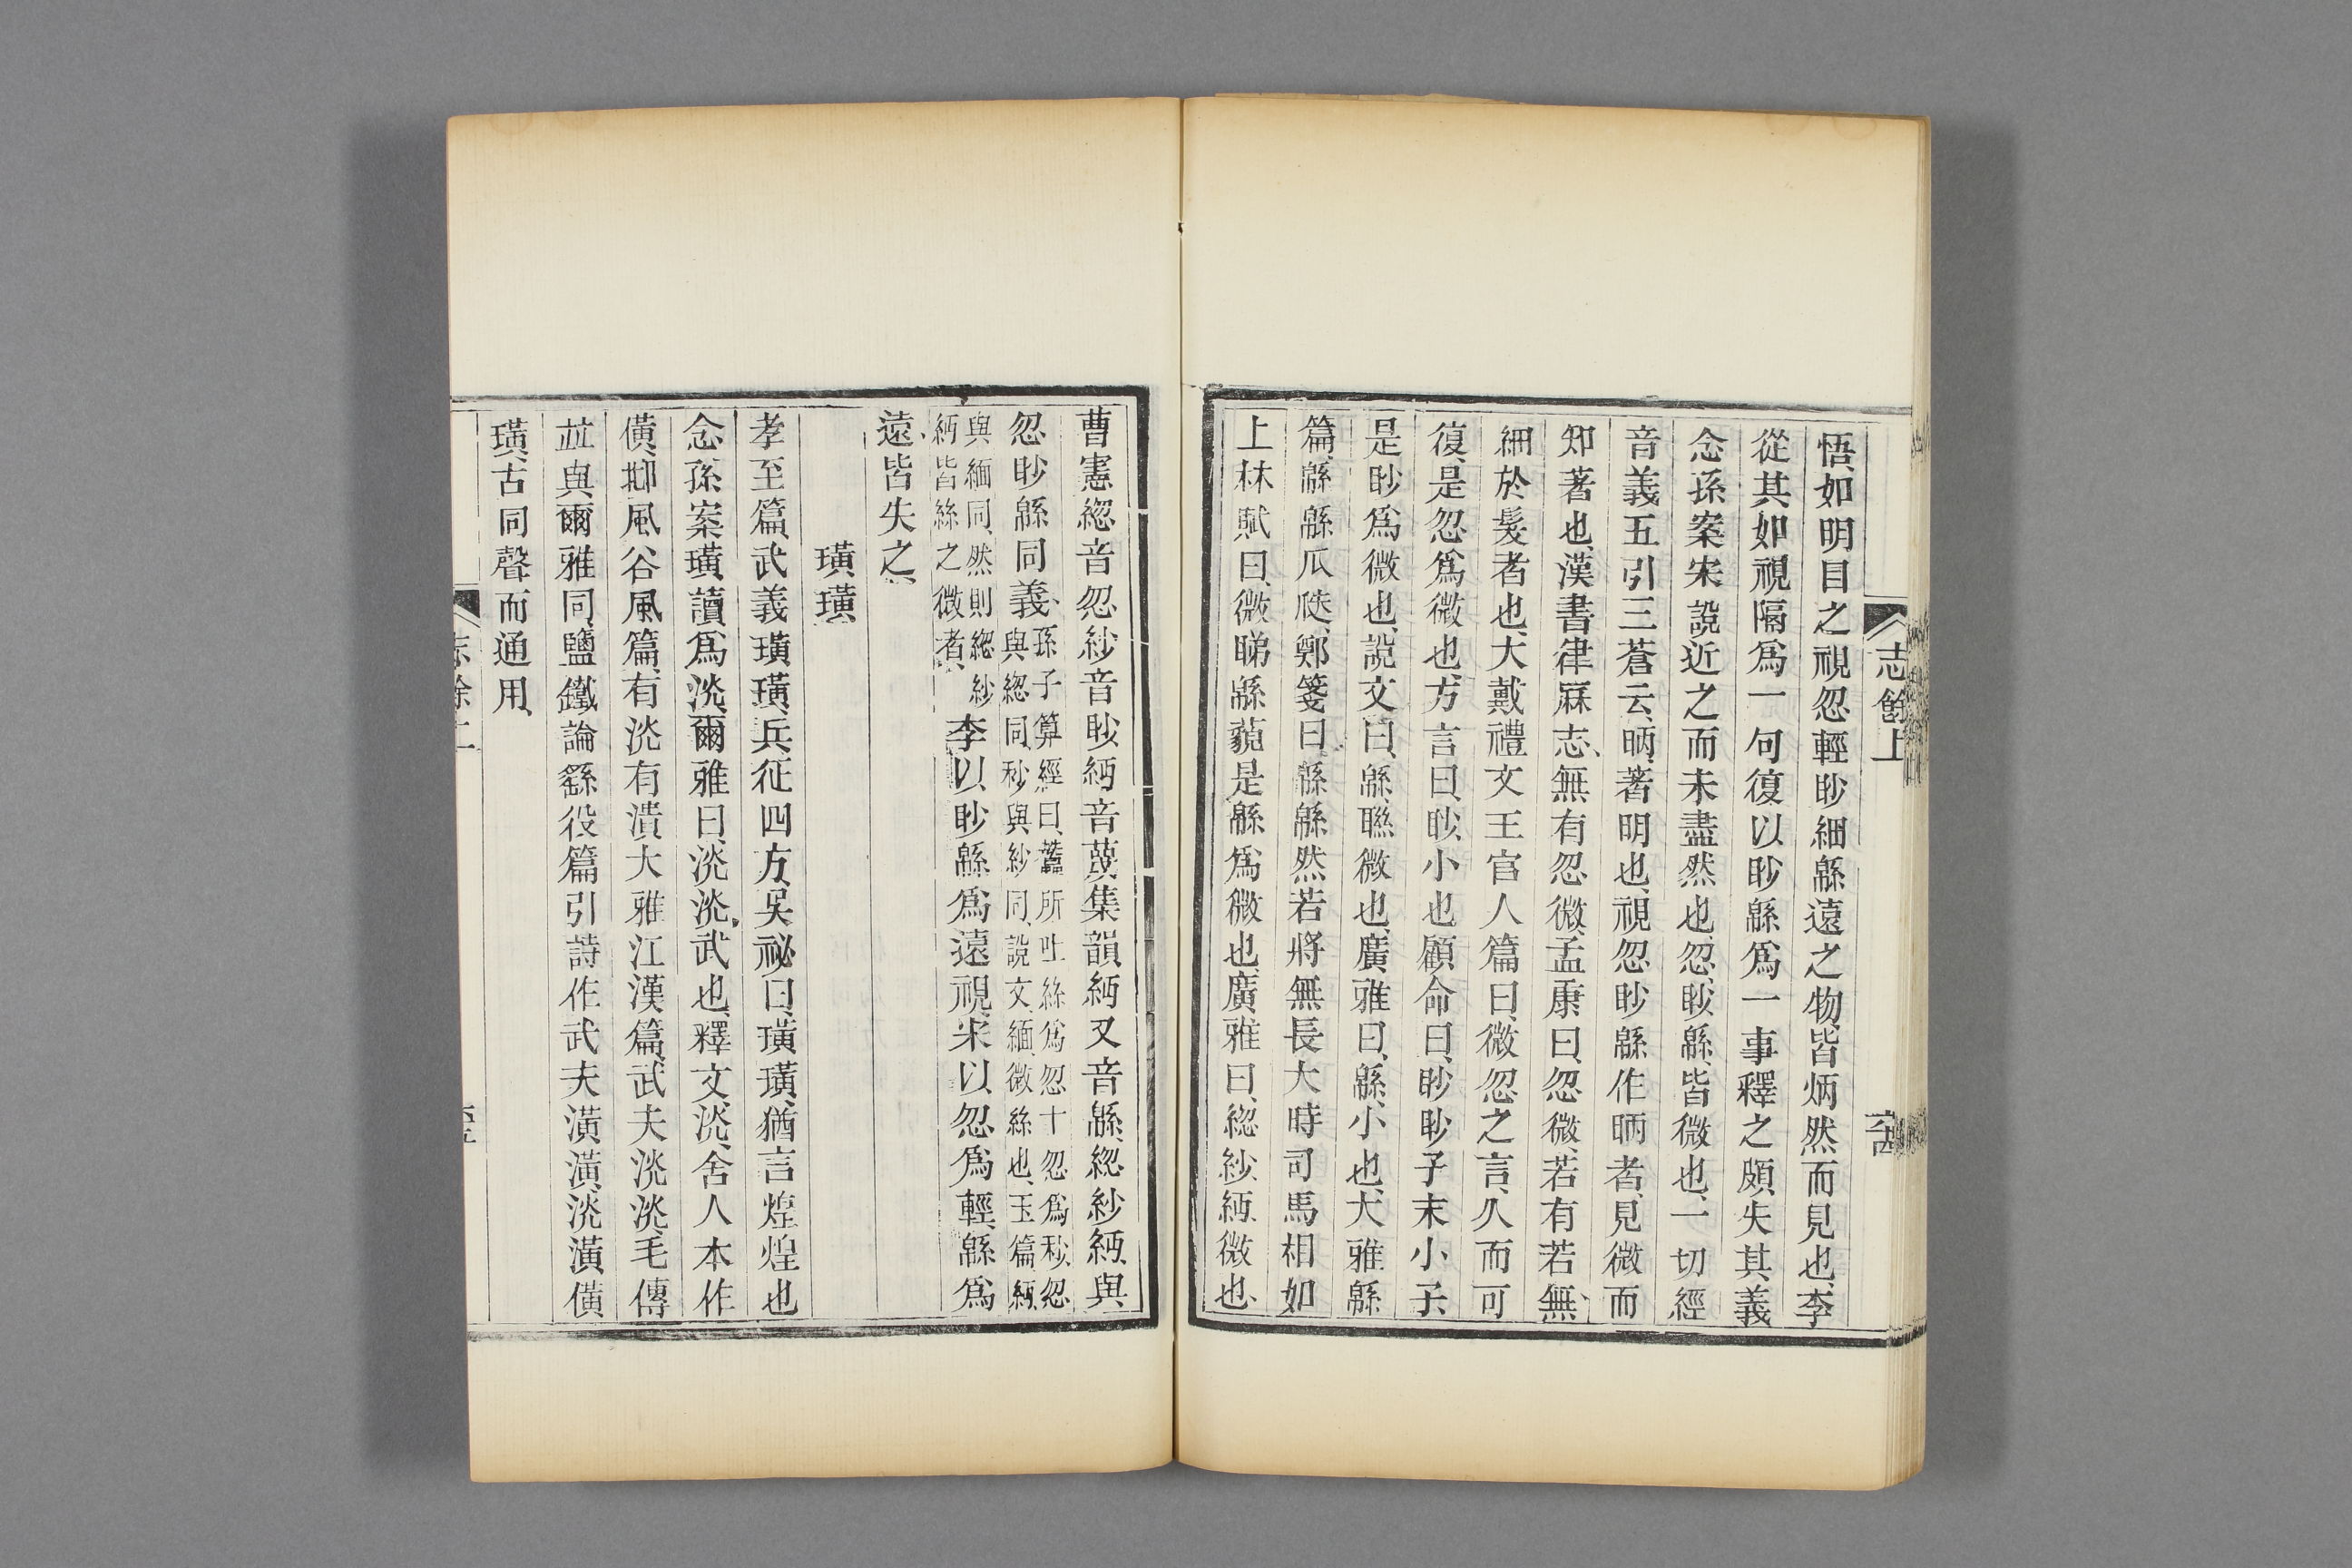 志餘上
六十四
悟、如明目之視忽輕眇細緜遠之物、皆炳然而見也、李
從其如視隔爲一句、復以眇緜爲一事釋之、頗失其義、
念孫案、宋說近之、而未盡然也、忽、眇、緜、皆微也、一切經
音義五引三蒼云、昞、著明也、視忽眇緜作昞者、見微而
知著也、漢書律厤志、無有忽微、孟康曰、忽微、若有若無、
細於髮者也、大戴禮文王官人篇曰、微忽之言、久而可
復、是忽爲微也、方言曰、眇、小也、顧命曰、眇眇予末小子、
是眇爲微也、說文曰、緜、聯微也、廣雅曰、緜、小也、大雅緜
篇、緜緜瓜瓞、鄭箋曰、緜緜然若將無長大時、司馬相如
上林賦曰、微睇緜藐、是緜爲微也、廣雅曰、緫、紗、緬、微也、
曹憲緫音忽、紗音眇、緬音蔑、集韻緬又音緜、緫紗緬、與
忽眇緜同義、
孫子算經曰、蠶所吐絲爲忽、十忽爲秒、忽
與緫同、秒與紗同、說文、緬、微絲也、玉篇、緬、
與緬同、然則緫紗
緬皆絲之微者、
李以眇緜爲遠視、宋以忽爲輕、緜爲
遠、皆失之、
璜璜
孝至篇、武義璜璜、兵征四方、吳祕曰、璜璜、猶言煌煌也、
念孫案、璜讀爲洸、爾雅曰、洸洸、武也、釋文、洸、舍人本作
僙、邶風谷風篇、有洸有潰、大雅江漢篇、武夫洸洸、毛傳
竝與爾雅同、鹽鐵論繇役篇引詩作武夫潢潢、洸潢僙
璜、古同聲而通用、